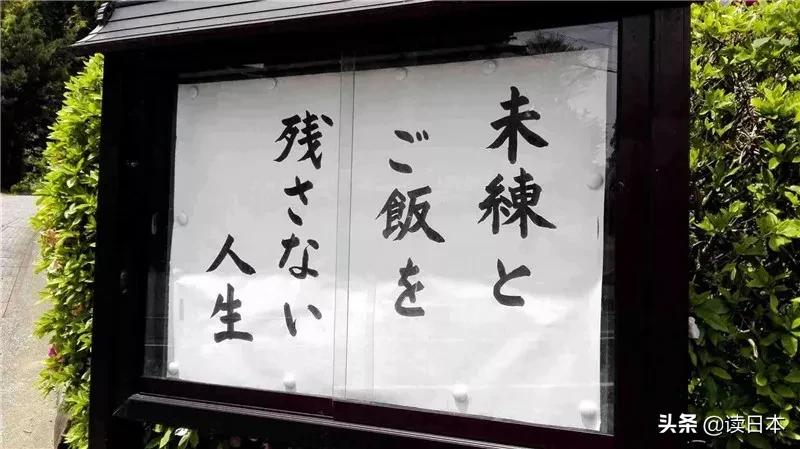 未練と
ご飯を
残さない
人生
头条 @读日本